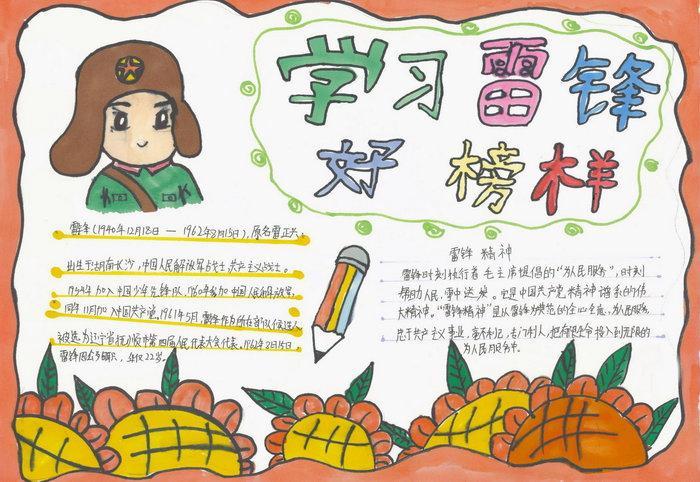 学习雷锋
好榜样
雷锋(1940年12月18日 — 1962年8月15日),原名雷正兴,
出生于湖南长沙,中国人民解放军战士,共产主义战士。
1954年加入中国少年先锋队,1960年参加中国人民解放军,
同年11月加入中国共产党。1961年5月,雷锋作为所在部队候选人,
被选为辽宁省抚顺市第四届人民代表大会代表。1962年8月15日
雷锋因公殉职,年仅22岁。
雷锋 精神
雷锋时刻践行着毛主席提倡的“为人民服务”,时刻
帮助人民,雪中送炭。它是中国共产党精神谱系的伟
大精神。“雷锋精神”是以雷锋为模范的全心全意为人民服务,
忠于共产主义事业,毫不利己,专门利人,把有限生命投入到无限的
为人民服务中。